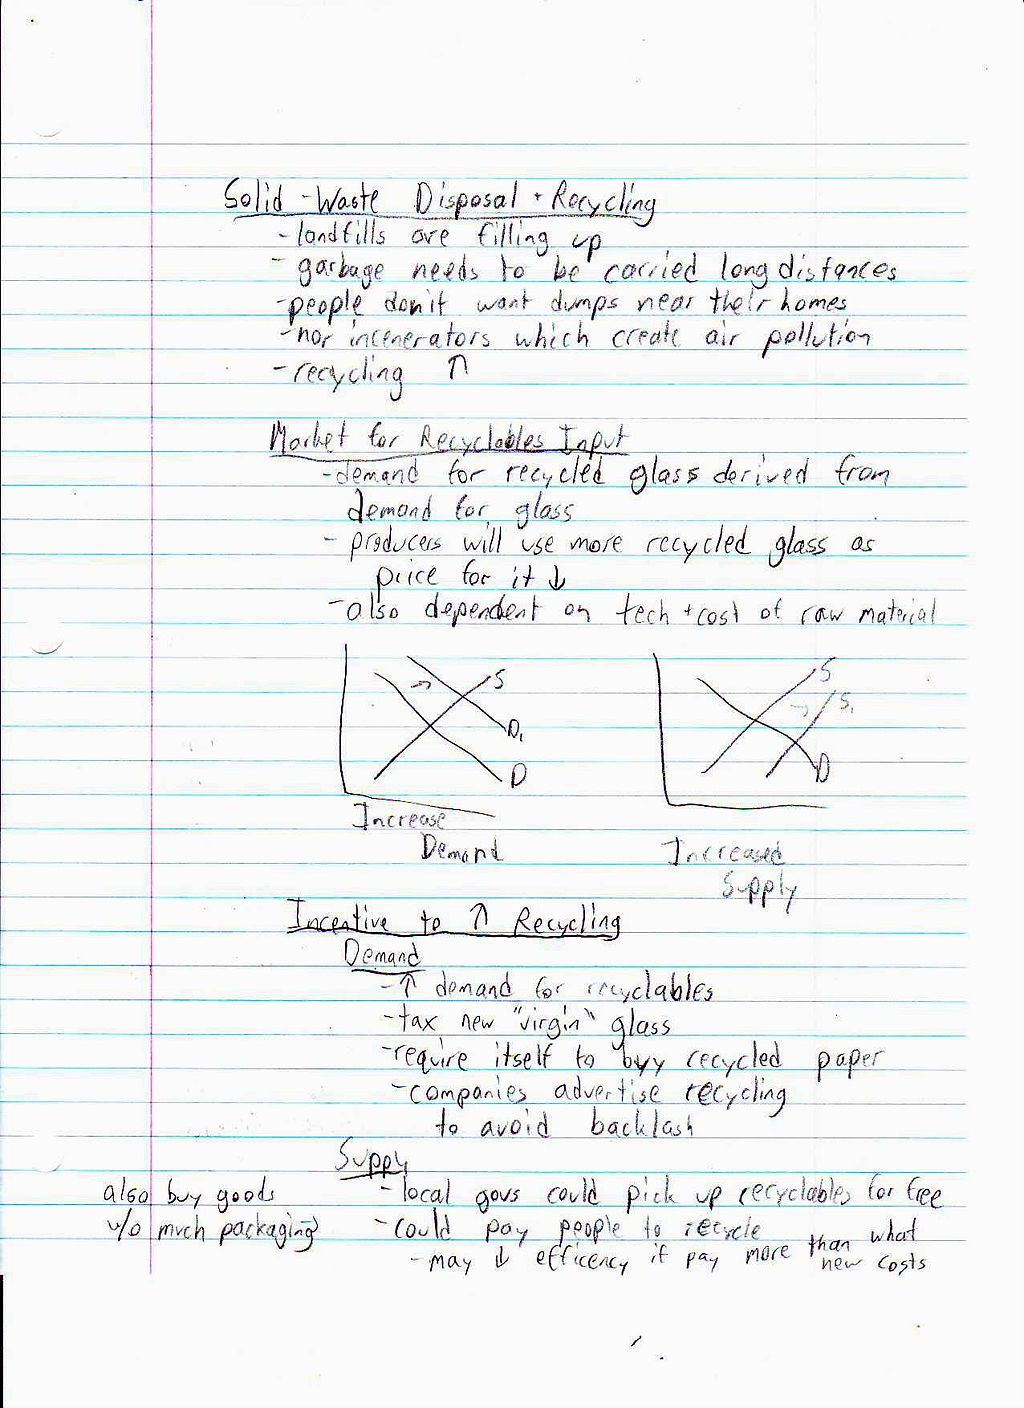 Solid-Waste Disposal + Recycling
- landfills are filling up
- garbage needs to be carried long distances
- people don't want dumps near their homes
- nor incenerators which create air pollution
- recycling ↑
Market for Recyclables Input
- demand for recycled glass derived from
demand for glass
- producers will use more recycled glass as
price for it ↓
- also dependent on tech + cost of raw material
→ S
D₁
D
Increase
Demand
S
→ S₁
D
Increased
Supply
Incentive to ↑ Recycling
Demand
- ↑ demand for recyclables
- tax new "virgin" glass
- require itself to buy recycled paper
- companies advertise recycling
to avoid backlash
Supply
- local govs could pick up recyclables for free
- could pay people to recycle
- may ↓ efficency if pay more than what
new costs
also buy goods
w/o much packaging